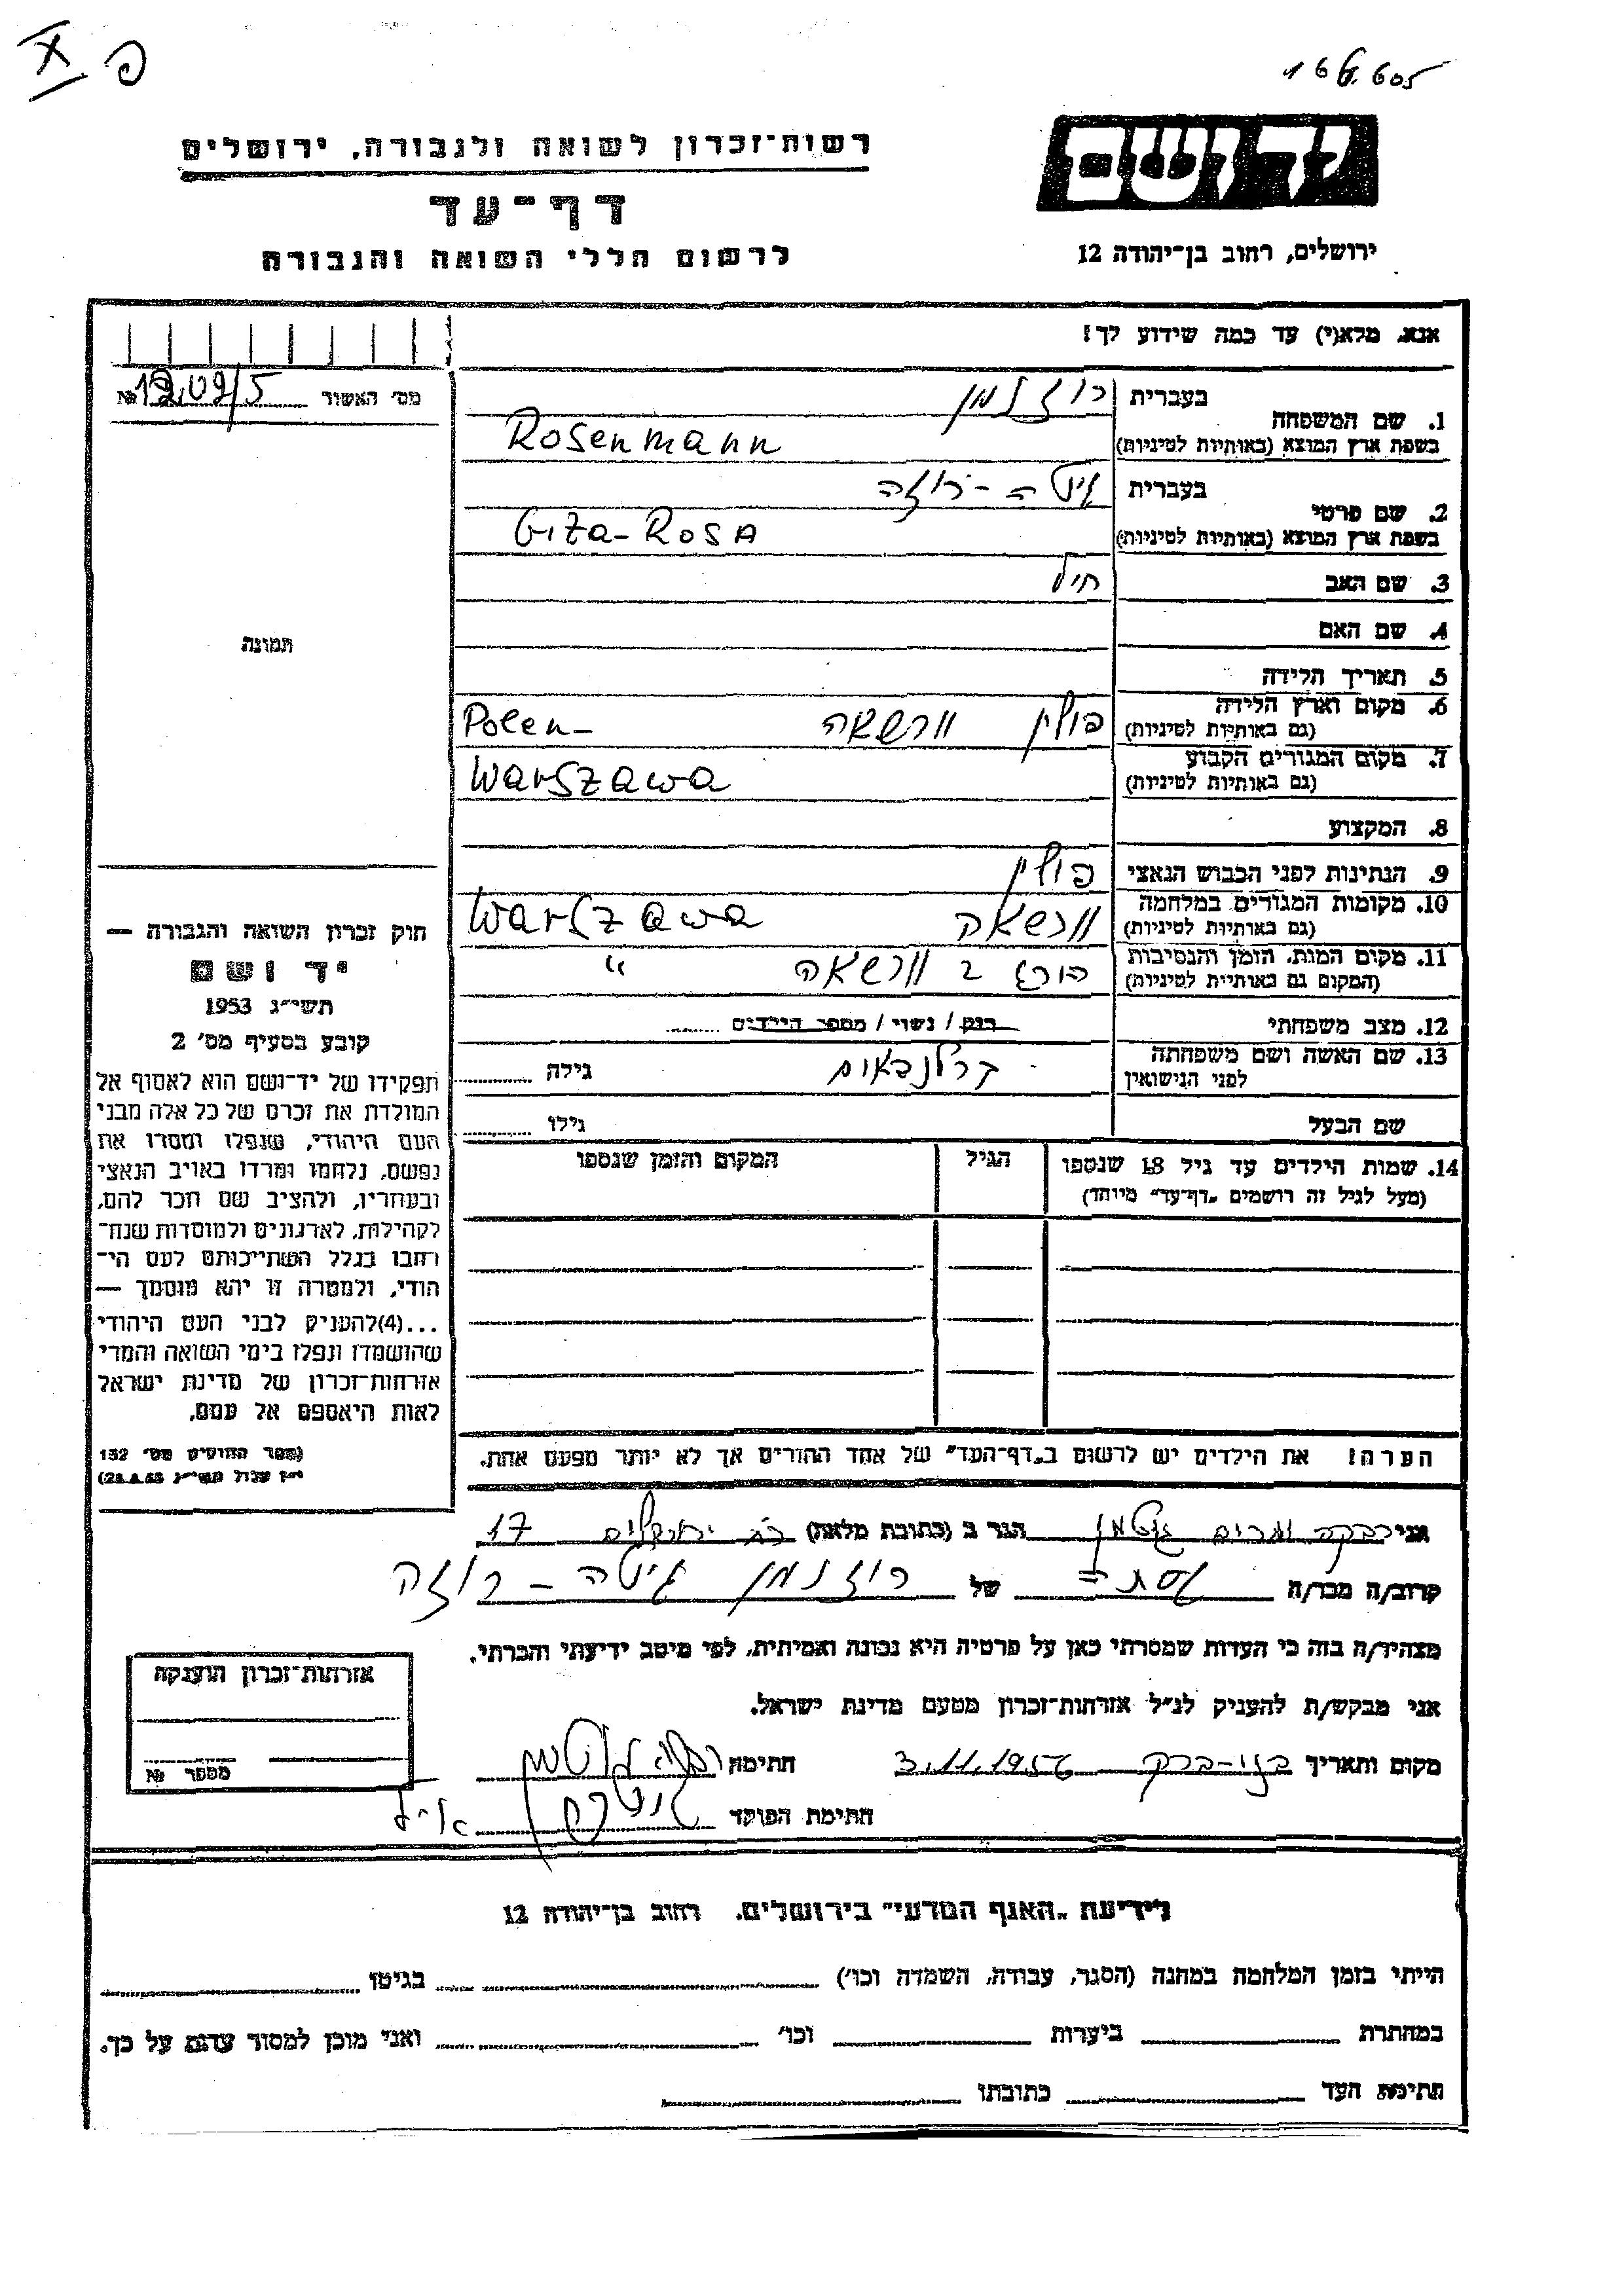 פ X
166.605
רשות־זכרון לשואה ולגבורה, ירושלים
דף־עד
לרשום חללי השואה והגבורה
יד ושם
ירושלים, רחוב בן־יהודה 12
אנא, מלא(י) עד כמה שידוע לך!
מס׳ האשור №
1. שם המשפחה בעברית רוזנמן
בשפת ארץ המוצא (באותיות לטיניות) Rosenmann
2. שם פרטי בעברית גיטה - רוזה
בשפת ארץ המוצא (באותיות לטיניות) Gita - ROSA
3. שם האב
4. שם האם
5. תאריך הלידה
6. מקום וארץ הלידה (גם באותיות לטיניות) פולין וורשאה Polen -
7. מקום המגורים הקבוע (גם באותיות לטיניות) Warszawa
8. המקצוע
9. הנתינות לפני הכבוש הנאצי פולין
10. מקומות המגורים במלחמה (גם באותיות לטיניות) וורשאה Warszawa
11. מקום המות, הזמן והנסיבות (המקום גם באותיות לטיניות) וורשאה "
12. מצב משפחתי רוק / נשוי / מספר הילדים
13. שם האשה ושם משפחתה לפני הנישואין גילה
שם הבעל גילו
14. שמות הילדים עד גיל 18 שנספו הגיל המקום והזמן שנספו
(מעל לגיל זה רושמים „דף־עד״ מיוחד)
הערה! את הילדים יש לרשום ב„דף־העד״ של אחד ההורים אך לא יותר מפעם אחת.
תמונה
חוק זכרון השואה והגבורה —
יד ושם
תשי״ג 1953
קובע בסעיף מס׳ 2
תפקידו של יד־ושם הוא לאסוף אל
המולדת את זכרם של כל אלה מבני
העם היהודי, שנפלו ומסרו את
נפשם, נלחמו ומרדו באויב הנאצי
ובעוזריו, ולהציב שם וזכר להם,
לקהילות, לארגונים ולמוסדות שנח־
רבו בגלל השתייכותם לעם הי־
הודי, ולמטרה זו יהא מוסמך —
...(4)להעניק לבני העם היהודי
שהושמדו ונפלו בימי השואה והמרי
אזרחות־זכרון של מדינת ישראל
לאות היאספם אל עמם.
(ספר החוקים מס׳ 132
י״ז אלול תשי״ג 28.8.53)
אני רבקה ומרים גוטמן הגר ב (כתובת מלאה) ירושלים 17
קרוב/ה מכר/ה של רוזנמן גיטה - רוזה
מצהיר/ה בזה כי העדות שמסרתי כאן על פרטיה היא נכונה ואמיתית, לפי מיטב ידיעתי והכרתי.
אני מבקש/ת להעניק לנ״ל אזרחות־זכרון מטעם מדינת ישראל.
מקום ותאריך בני-ברק 3.11.1956 חתימה
חתימת הפוקד
אזרחות־זכרון הוענקה
מספר №
לידיעת „האגף המדעי״ בירושלים, רחוב בן־יהודה 12
הייתי בזמן המלחמה במחנה (הסגר, עבודה, השמדה וכו׳) בגיטו
במחתרת ביערות וכו׳ ואני מוכן למסור עדות על כך.
חתימת העד כתובתו